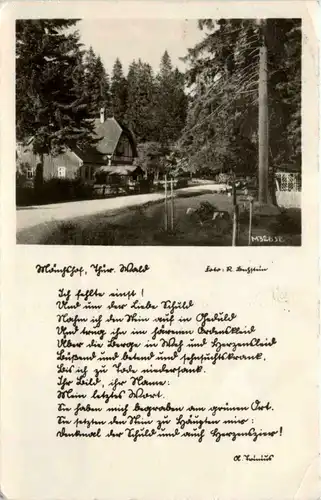 Mönchshof, Thür. Wald
Foto: R. Bechstein
Ich fehlte einst!
Und um der Liebe Schuld
Nahm ich den Stein auf in Geduld
Und trug ihn im härenen Ordenskleid
Über die Berge in Weh und Herzenleid
Büßend und betend und sehnsuchtskrank.
Bis ich zu Tode niedersank.
Ihr Bild, ihr Name:
Mein letztes Wort.
Sie haben mich begraben am grünen Ort.
Sie setzten den Stein zu Häupten mir:
Denkmal der Schuld und auch Herzenszier!
A. Trinius